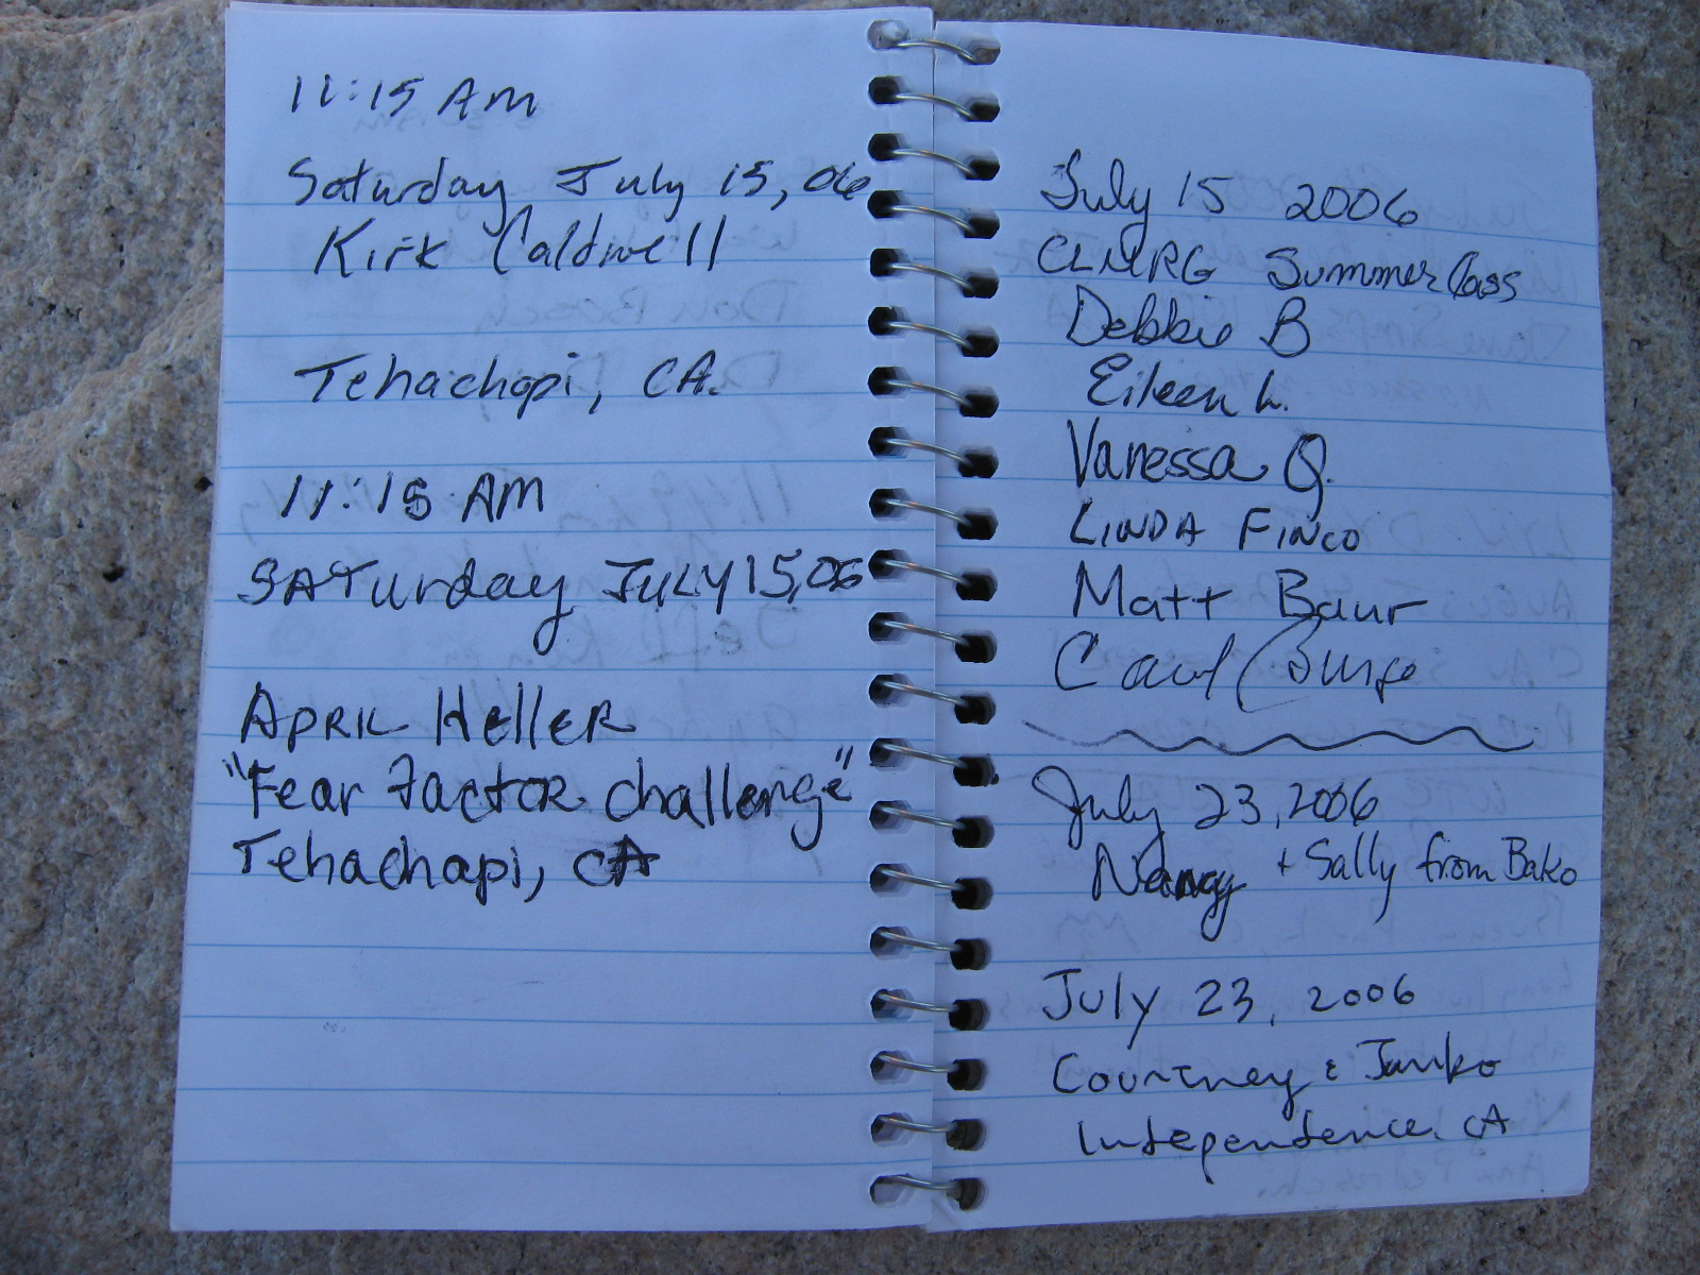 11:15 AM
Saturday July 15, 06
Kirk Caldwell
Tehachapi, CA.
11:15 AM
SATurday JULY 15, 06
APRIL HelleR
"Fear Factor challenge"
Tehachapi, CA
July 15 2006
CLMRG Summer Class
Debbie B
Eileen L.
Vanessa G.
LINDA FINCO
Matt Baur
July 23, 2006
Nancy + Sally from Bako
July 23, 2006
Courtney &
Independence, CA